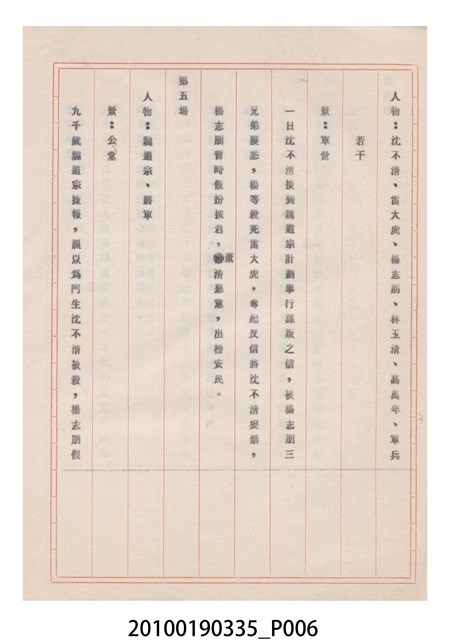 人物：沈不清、雷大虎、楊志朋、林玉清、高萬年、軍兵
若干
景：軍営
一日沈不清接到魏道宗計劃舉行謀叛之信，被楊志朋三
兄弟襲擊，楊等殺死雷大虎，奪起反信將沈不清捉禁，
楊志朋暫時假扮按君，肅清黨，出榜安民。
第五場
人物：魏道宗、將軍
景：公堂
九千歲魏道宗接報，誤以為門生沈不清被殺，楊志朋假
20100190335_P006